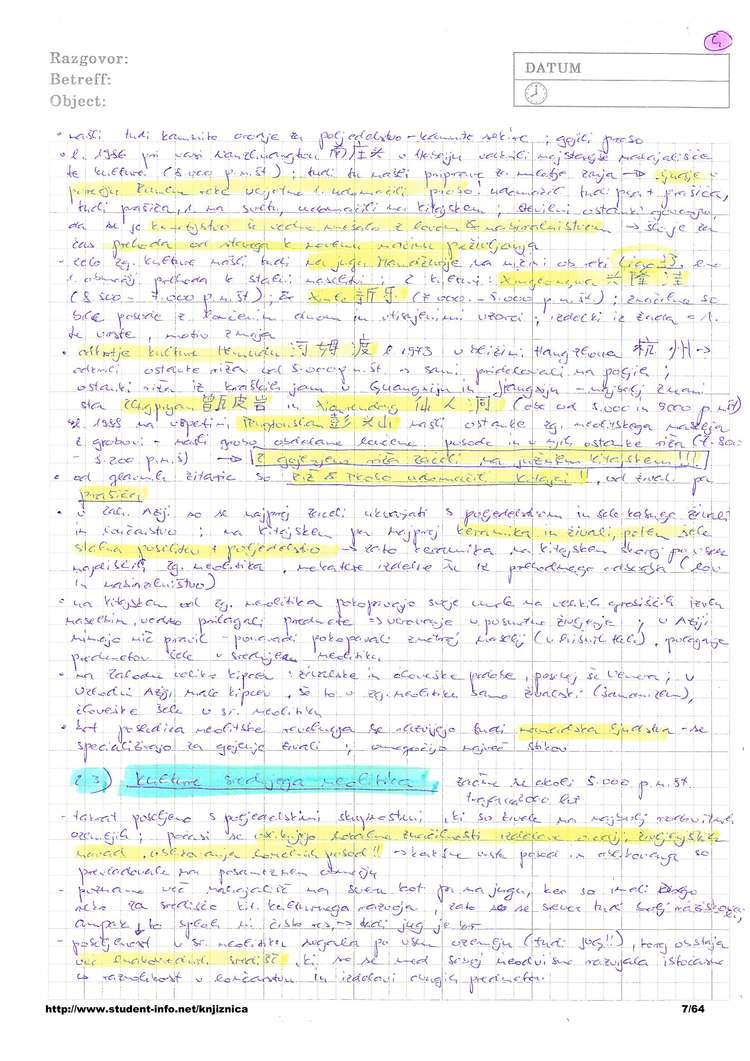 4
Razgovor:
Betreff:
Object:
DATUM
• našli tudi kamnito orodje za poljedelstvo - kamnite sekire ; gojili proso
• l. 1986 pri vasi 南庄头 v Hebeiju odkrili najstarejše
te kulture (8.000 p.n.št) ; tudi tu našli priprave za mletje zrnja → ljudje v
porečju Rumene reke verjetno 1. udomačili proso! udomačili tudi psa + prašiča,
tudi prašiča, 1. na svetu, udomačili na Kitajskem ; številni ostanki govorijo,
da se je kmetijstvo še vedno mešalo z lovom & nabiralništvom → šlo je za
čas prehoda od starega k novemu načinu preživljanja
- zelo zg. kulture našli tudi na jugu Mandžurije na nižini ob reki Liao
1. območij prehoda k stalni naselitvi ; 2 kulturi: Xinglongwa 兴隆洼
(8.500 - 7.000 p.n.št) ; & Xinle 新乐 (7.000 - 5.000 p.n.št) ; značilne so
bile posode z ravnim dnom in vtisnjenimi vzorci ; izdelki iz žada - 1.
te vrste, motiv zmaja
• odkritje kulture Hemudu 河姆渡 l 1973 v bližini Hangzhoua 杭州 →
odkrili ostanke riža od 5.000 p.n.št → sami pridelovali na polju ;
ostanki riža iz kraških jam v Guangxiju in Jiangxiju - najbolj znani
sta Zengpiyan 曾瓦皮岩 in Xianrendong 仙人洞 (obe od 8.000 in 9000 p.n.št)
• l. 1988 na vzpetini Pengtoushan 彭头山 našli ostanke zg. neolitskega naselja
z grobovi - našli grobo obdelane lončene posode in v njih ostanke riža (7.800
- 5.200 p.n.š) → Z gojenjem riža začeli na južnem Kitajskem!!!
• od glavnih žitaric so riž & proso udomačili Kitajci!!, od živali pa
prašiča
• v zah. Aziji so se najprej začeli ukvarjati s poljedelstvom in šele kasneje živali
in lončarstvo ; na Kitajskem pa najprej keramika in živali, potem šele
stalna poselitev + poljedelstvo → zato keramika na Kitajskem skoraj pri vseh
najdiščih zg. neolitika, nekatere izdelke že iz prehodnega obdobja (lov
in nabiralništvo)
• na Kitajskem od zg. neolitika pokopavajo svoje umrle na velikih grobiščih izven
naselbin, vedno prilagali predmete ⇒ verovanje v posmrtno življenje ; v Aziji
nimajo nič pravil - ponavadi pokopavali znotraj naselij (v hišnih tleh), polaganje
predmetov šele v srednjem neolitiku
• na Zahodu veliko kipcev : živalske in človeške podobe, posebej še Venera ; v
Vzhodni Aziji malo kipcev, še to v zg. neolitiku samo živalski (šamanizem),
človeške šele v sr. neolitiku
• kot posledica neolitske revolucije se razvijejo tudi nomadska ljudstva - se
specializirajo za gojenje živali ; omogočijo največ stikov
2.3) Kulture srednjega neolitika začne se okoli 5.000 p.n.št.
traja 2000 let
- takrat poseljeno s poljedelskimi skupnostmi, ki so živele na najbolj rodovitnih
ozemljih ; počasi se oblikujejo lokalne značilnosti izdelave orodij, življenjskih
navad, oblikovanja lončenih posod!! → kakšne vrste posod in oblikovanja so
prevladovale na posameznem območju
- poznamo več nahajališč na severu kot pa na jugu, ker so imeli
reko za središče kit. kulturnega razvoja, zato so se sever tudi bolj raziskovali,
ampak to sploh ni čisto res, → tudi jug je bil
- poseljenost v sr. neolitiku segala po vsem ozemlju (tudi jug!!), torej obstaja
več enakovrednih središč, ki so se med seboj neodvisno razvijala istočasno
↳ raznolikost v lončarstvu in izdelavi drugih predmetov.
http://www.student-info.net/knjiznica
7/64